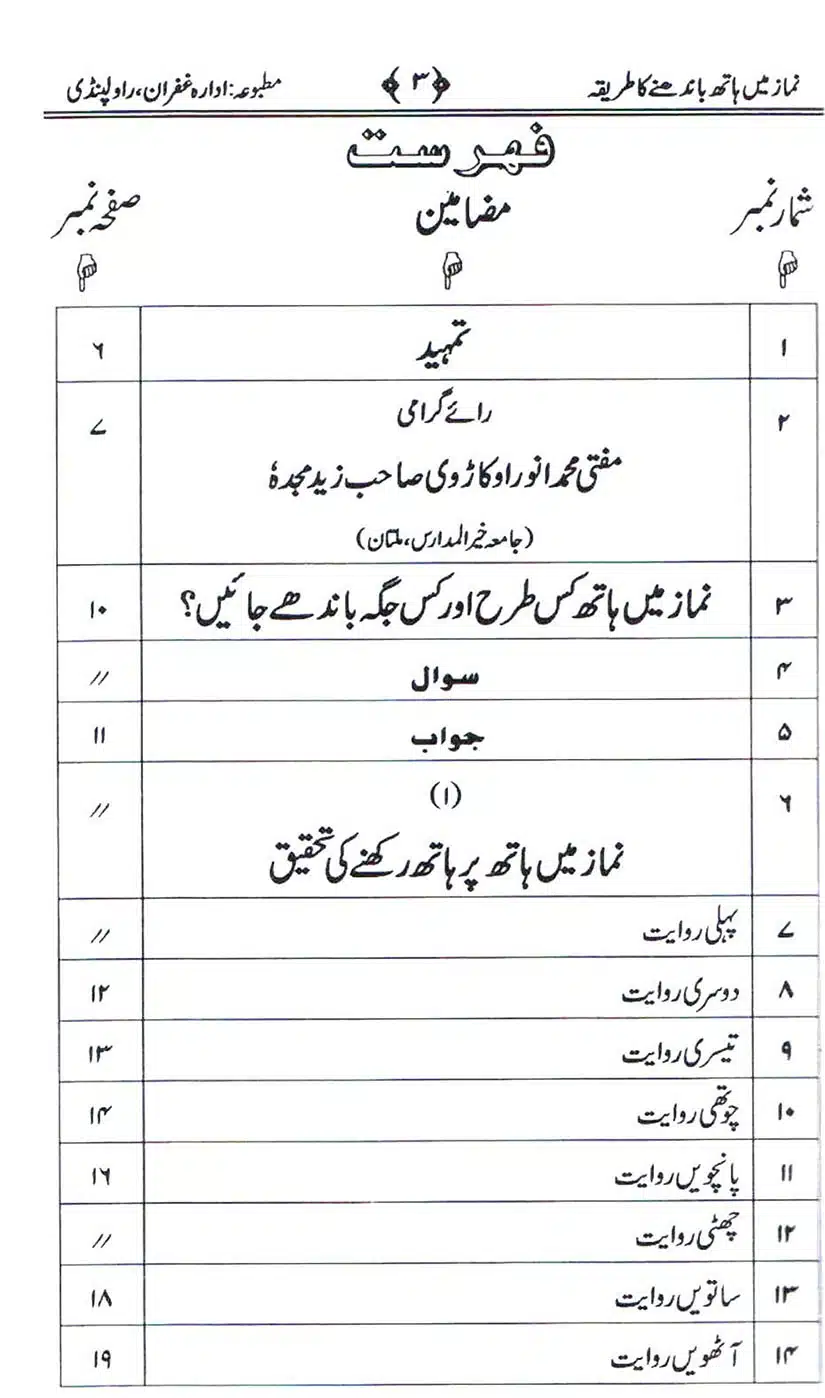 نماز میں ہاتھ باندھنے کا طریقہ ﴿۳﴾ مطبوعہ: ادارہ غفران، راولپنڈی
فہرست
شمار نمبر مضامین صفحہ نمبر
۱ تمہید ۶
۲ رائے گرامی ۷
مفتی محمد انور اوکاڑوی صاحب زید مجدہٗ
(جامعہ خیر المدارس، ملتان)
۳ نماز میں ہاتھ کس طرح اور کس جگہ باندھے جائیں؟ ۱۰
۴ سوال //
۵ جواب ۱۱
۶ (۱) //
نماز میں ہاتھ پر ہاتھ رکھنے کی تحقیق
۷ پہلی روایت //
۸ دوسری روایت ۱۲
۹ تیسری روایت ۱۳
۱۰ چوتھی روایت ۱۴
۱۱ پانچویں روایت ۱۶
۱۲ چھٹی روایت //
۱۳ ساتویں روایت ۱۸
۱۴ آٹھویں روایت ۱۹